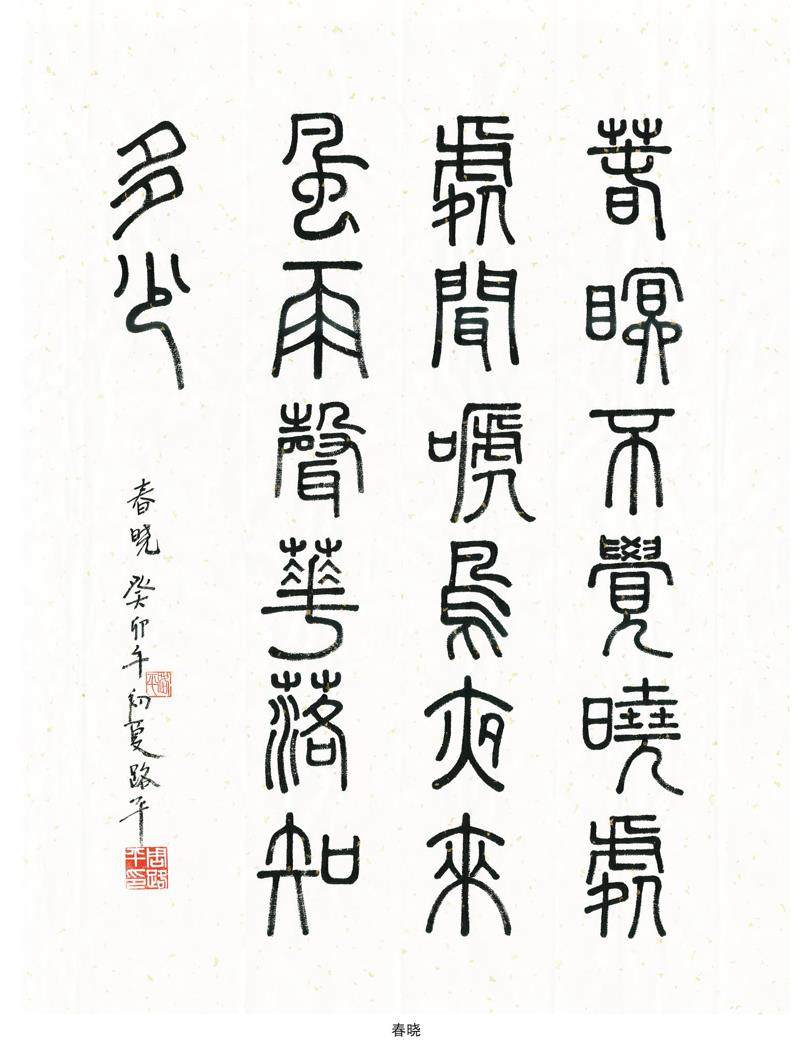 春瞑不覺曉處
處聞嗁鳥夜來
風雨聲華落知
多少
春晓 癸卯年初夏路平
周路平印
春晓